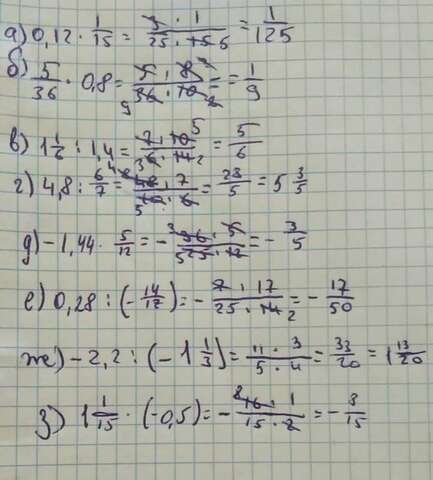 а) 0,12 · 1/15 = 3 · 1 / 25 · 15 5 = 1/125
б) 5/36 · 0,8 = 5 · 8 / 9 36 · 10 2 = 1/9
в) 1 1/6 : 1,4 = 7 · 10 5 / 36 · 14 2 = 5/6
г) 4,8 : 6/7 = 4 8 48 · 7 / 5 10 · 6 = 28/5 = 5 3/5
д) -1,44 · 5/12 = - 3 36 · 5 / 5 25 · 12 = - 3/5
е) 0,28 : (- 14/17) = - 7 · 17 / 25 · 14 2 = - 17/50
же) -2,2 : (-1 1/3) = 11 · 3 / 5 · 4 = 33/20 = 1 13/20
з) 1 1/15 · (-0,5) = - 8 16 · 1 / 15 · 2 = - 8/15